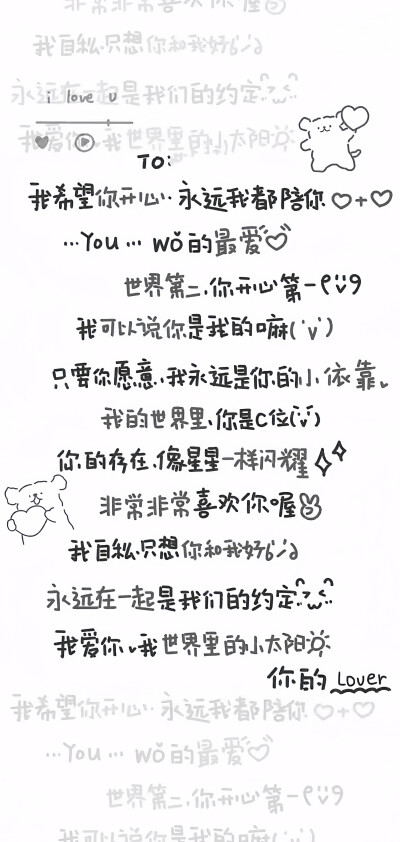 非常非常喜欢你喔
我自私.只想你和我好
永远在一起是我们的约定
i love u
我爱你、我世界里的小太阳
TO:
我希望你开心··永远我都陪你♡+♡
···You··· wǒ的最爱♡
世界第二.你开心第一
我可以说你是我的嘛(ˊvˋ)
只要你愿意.我永远是你的小依靠。
我的世界里.你是C位
你的存在.像星星一样闪耀
非常非常喜欢你喔
我自私.只想你和我好
永远在一起是我们的约定
我爱你、我世界里的小太阳
你的 Lover
我希望你开心··永远我都陪你♡+♡
···You··· wǒ的最爱♡
世界第二.你开心第一
我可以说你是我的嘛(ˊvˋ)